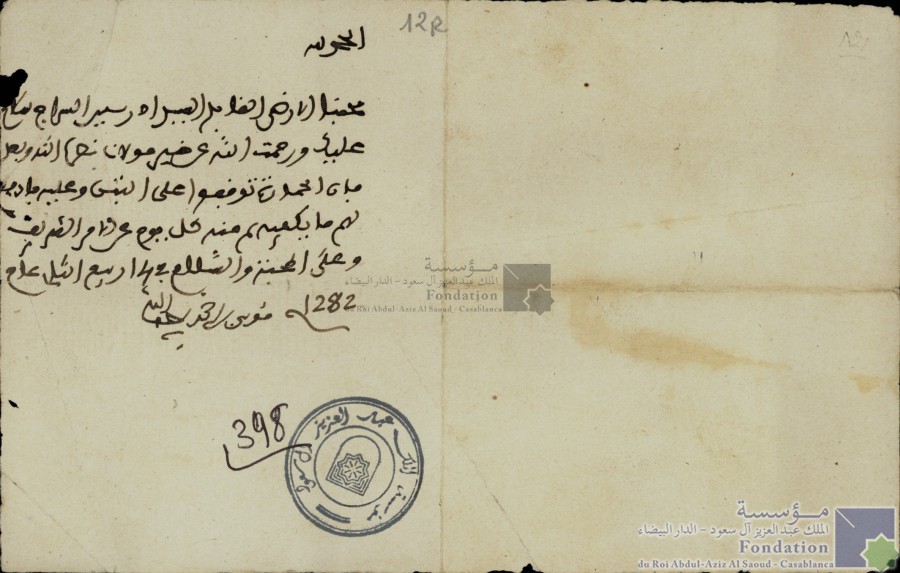 12R
12
الحمد لله
محبنا الارضى القايد إدريس السراج سلام
عليك ورحمت الله عن خير مولانا نصره الله وبعد
على النبن وعليه
لهم ما يكفيهم منه كل يوم عن امر الشريف
وعلى المحبة والسلام في 14 ربيع الثاني عام
1282 موسى بن احمد لطف الله به
398
مؤسسة الملك عبد العزيز آل سعود
مؤسسة
الملك عبد العزيز آل سعود - الدار البيضاء
Fondation
du Roi Abdul-Aziz Al Saoud - Casablanca
مؤسسة
الملك عبد العزيز آل سعود - الدار البيضاء
Fondation
du Roi Abdul-Aziz Al Saoud - Casablanca